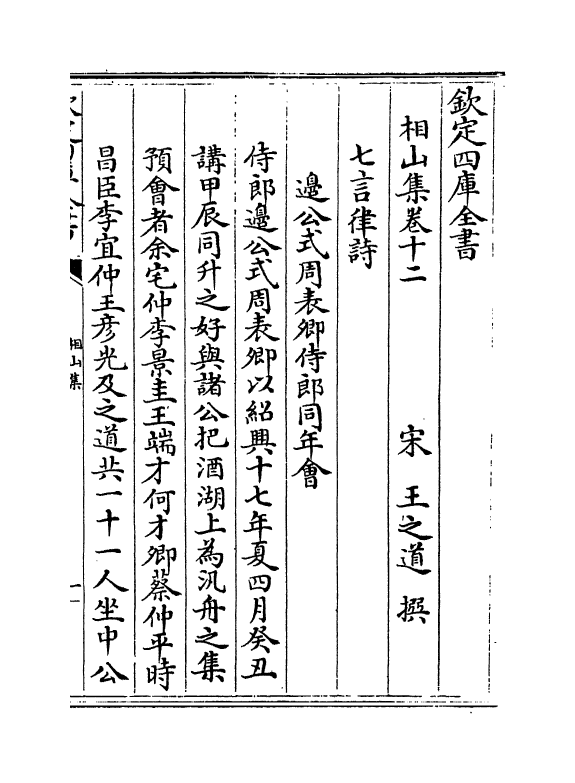 欽定四庫全書
相山集卷十二
宋 王之道 撰
七言律詩
邊公式周表卿侍郎同年會
侍郎邊公式周表卿以紹興十七年夏四月癸丑
講甲辰同升之好與諸公把酒湖上為汎舟之集
預會者余宅仲李景圭王端才何才卿蔡仲平時
昌臣李宜仲王彥光及之道共一十一人坐中公
相山集
一